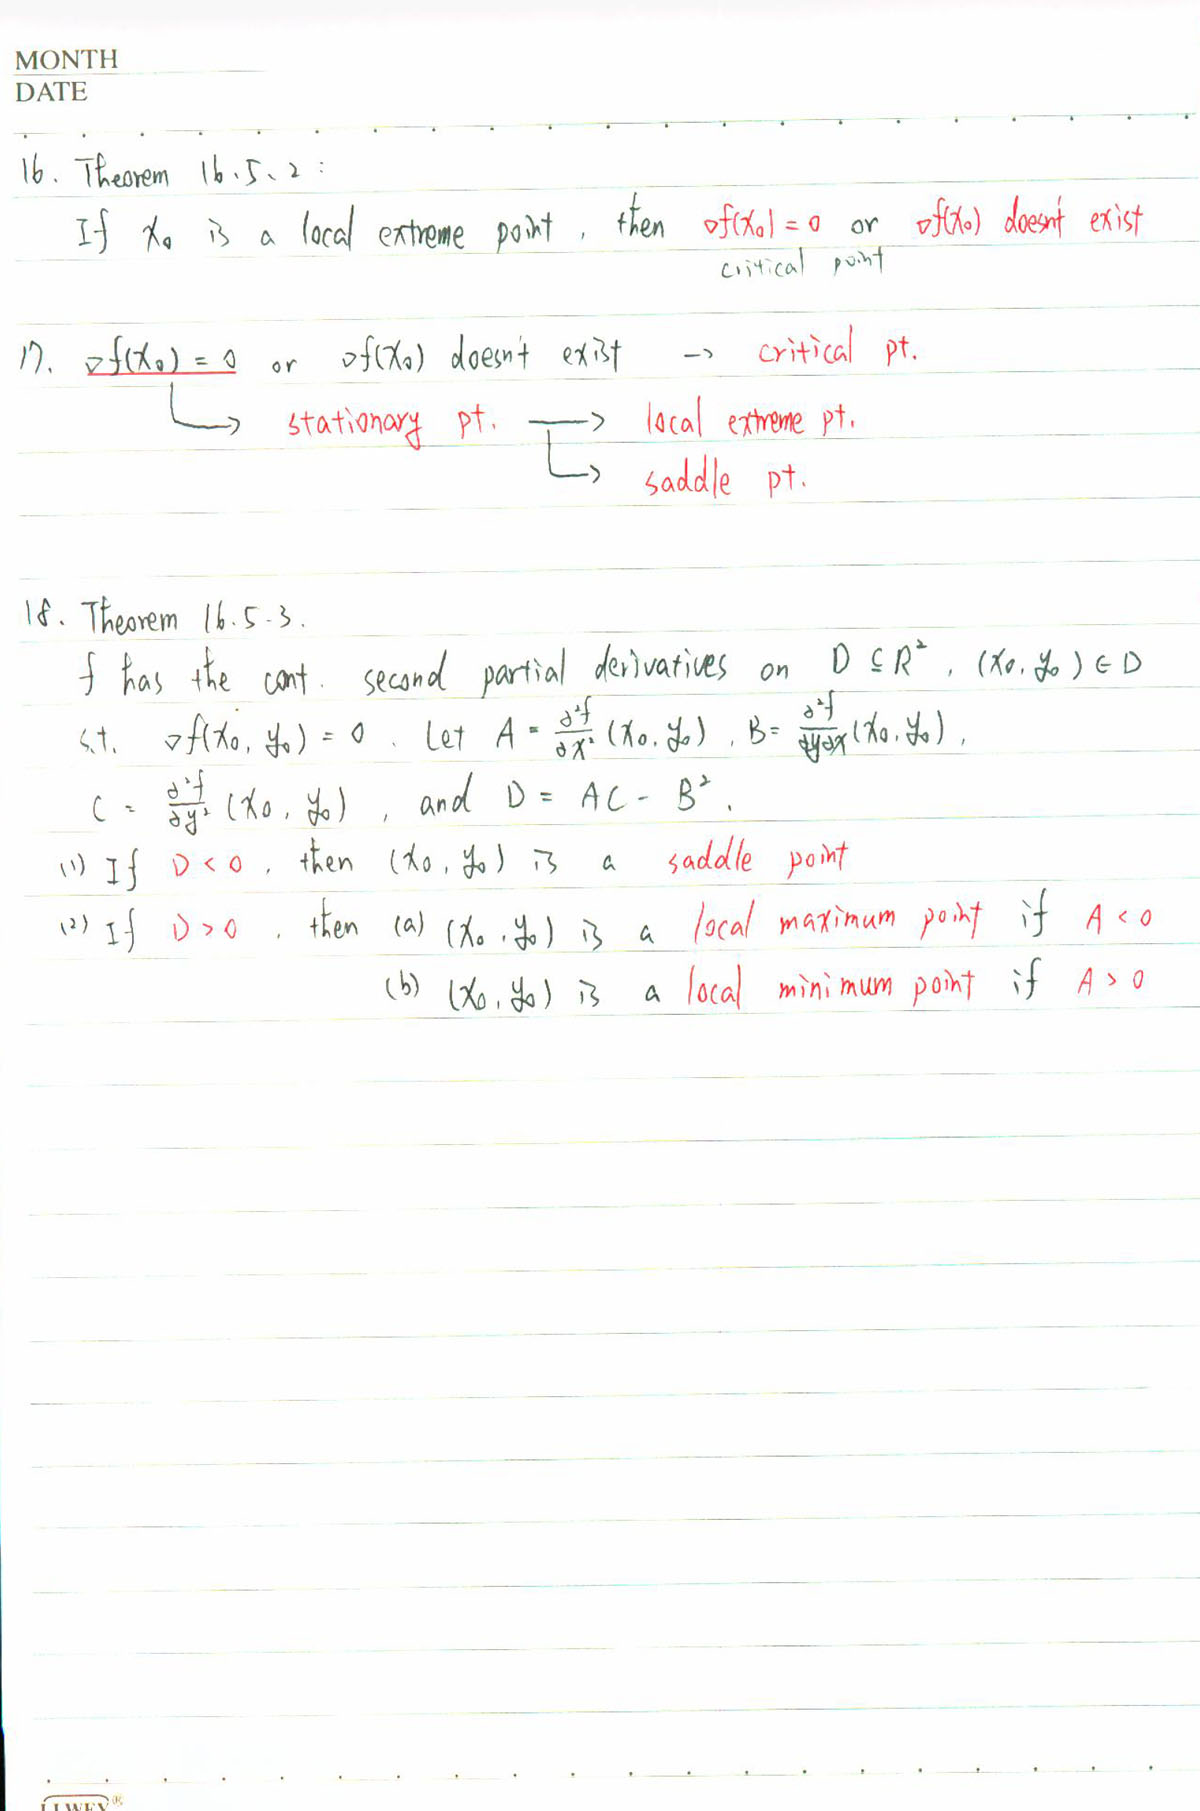 MONTH
DATE
16. Theorem 16.5.2 :
If x₀ is a local extreme point, then ∇f(x₀) = 0 or ∇f(x₀) doesn't exist
critical point
17. ∇f(x₀) = 0 or ∇f(x₀) doesn't exist → critical pt.
↳ stationary pt. → local extreme pt.
↳ saddle pt.
18. Theorem 16.5.3.
f has the cont. second partial derivatives on D ⊆ R², (x₀, y₀) ∈ D
s.t. ∇f(x₀, y₀) = 0. Let A = ∂²f/∂x² (x₀, y₀), B = ∂²f/∂y∂x (x₀, y₀),
C = ∂²f/∂y² (x₀, y₀), and D = AC - B².
(1) If D < 0, then (x₀, y₀) is a saddle point
(2) If D > 0, then (a) (x₀, y₀) is a local maximum point if A < 0
(b) (x₀, y₀) is a local minimum point if A > 0